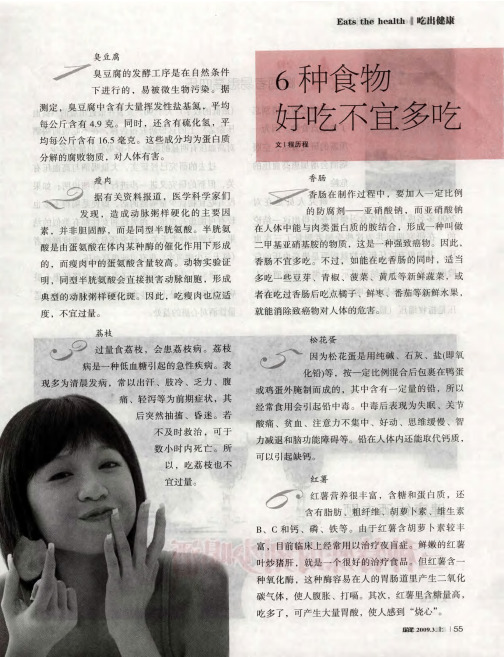 Eats the health 吃出健康
6 种食物
好吃不宜多吃
文 程历程
1
臭豆腐
臭豆腐的发酵工序是在自然条件
下进行的，易被微生物污染。据
测定，臭豆腐中含有大量挥发性盐基氮，平均
每公斤含有 4.9 克。同时，还含有硫化氢，平
均每公斤含有 16.5 毫克。这些成分均为蛋白质
分解的腐败物质，对人体有害。
2
瘦肉
据有关资料报道，医学科学家们
发现，造成动脉粥样硬化的主要因
素，并非胆固醇，而是同型半胱氨酸。半胱氨
酸是由蛋氨酸在体内某种酶的催化作用下形成
的，而瘦肉中的蛋氨酸含量较高。动物实验证
明，同型半胱氨酸会直接损害动脉细胞，形成
典型的动脉粥样硬化斑。因此，吃瘦肉也应适
度，不宜过量。
3
荔枝
过量食荔枝，会患荔枝病。荔枝
病是一种低血糖引起的急性疾病。表
现多为清晨发病，常以出汗、肢冷、乏力、腹
痛、轻泻等为前期症状，其
后突然抽搐、昏迷。若
不及时救治，可于
数小时内死亡。所
以，吃荔枝也不
宜过量。
4
香肠
香肠在制作过程中，要加入一定比例
的防腐剂——亚硝酸钠，而亚硝酸钠
在人体中能与肉类蛋白质的胺结合，形成一种叫做
二甲基亚硝基胺的物质，这是一种强致癌物。因此，
香肠不宜多吃。不过，如能在吃香肠的同时，适当
多吃一些豆芽、青椒、菠菜、黄瓜等新鲜蔬菜，或
者在吃过香肠后吃点橘子、鲜枣、番茄等新鲜水果，
就能消除致癌物对人体的危害。
5
松花蛋
因为松花蛋是用纯碱、石灰、盐(即氧
化铅)等，按一定比例混合后包裹在鸭蛋
或鸡蛋外腌制而成的，其中含有一定量的铅，所以
经常食用会引起铅中毒。中毒后表现为失眠、关节
酸痛、贫血、注意力不集中、好动、思维缓慢、智
力减退和脑功能障碍等。铅在人体内还能取代钙质，
可以引起缺钙。
6
红薯
红薯营养很丰富，含糖和蛋白质，还
含有脂肪、粗纤维、胡萝卜素、维生素
B、C 和钙、磷、铁等。由于红薯含胡萝卜素较丰
富，目前临床上经常用以治疗夜盲症。鲜嫩的红薯
叶炒猪肝，就是一个很好的治疗食品。但红薯含一
种氧化酶，这种酶容易在人的胃肠道里产生二氧化
碳气体，使人腹胀、打嗝。其次，红薯里含糖量高，
吃多了，可产生大量胃酸，使人感到“烧心”。
2009.3 55